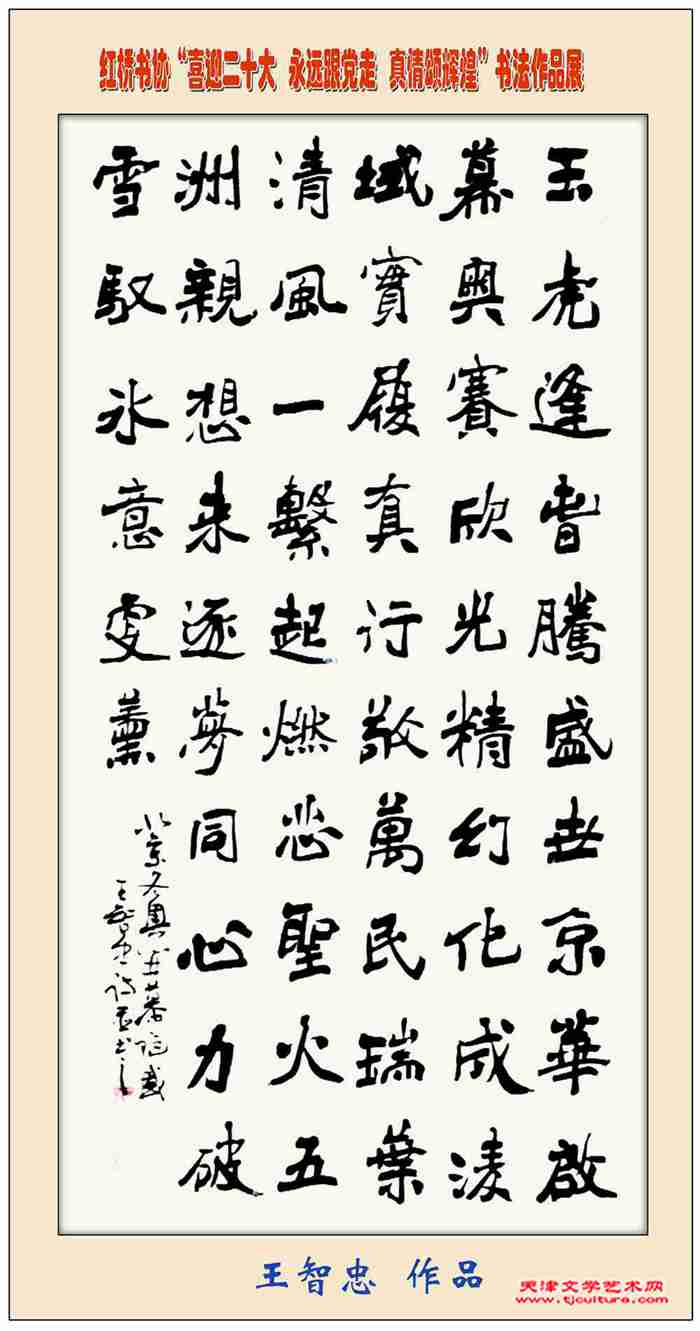 红桥书协“喜迎二十大 永远跟党走 真情颂辉煌”书法作品展
玉虎逢春騰盛世京華啟
幕奧賽欣光精幻化成淩
域實履真行敬萬民瑞葉
清風一繫起燃聖火五
洲親想来逐夢同心力破
雪馭冰意更薰
北京冬奥幕感
王智忠诗书
王智忠 作品
天津文学艺术网
www.tjculture.com